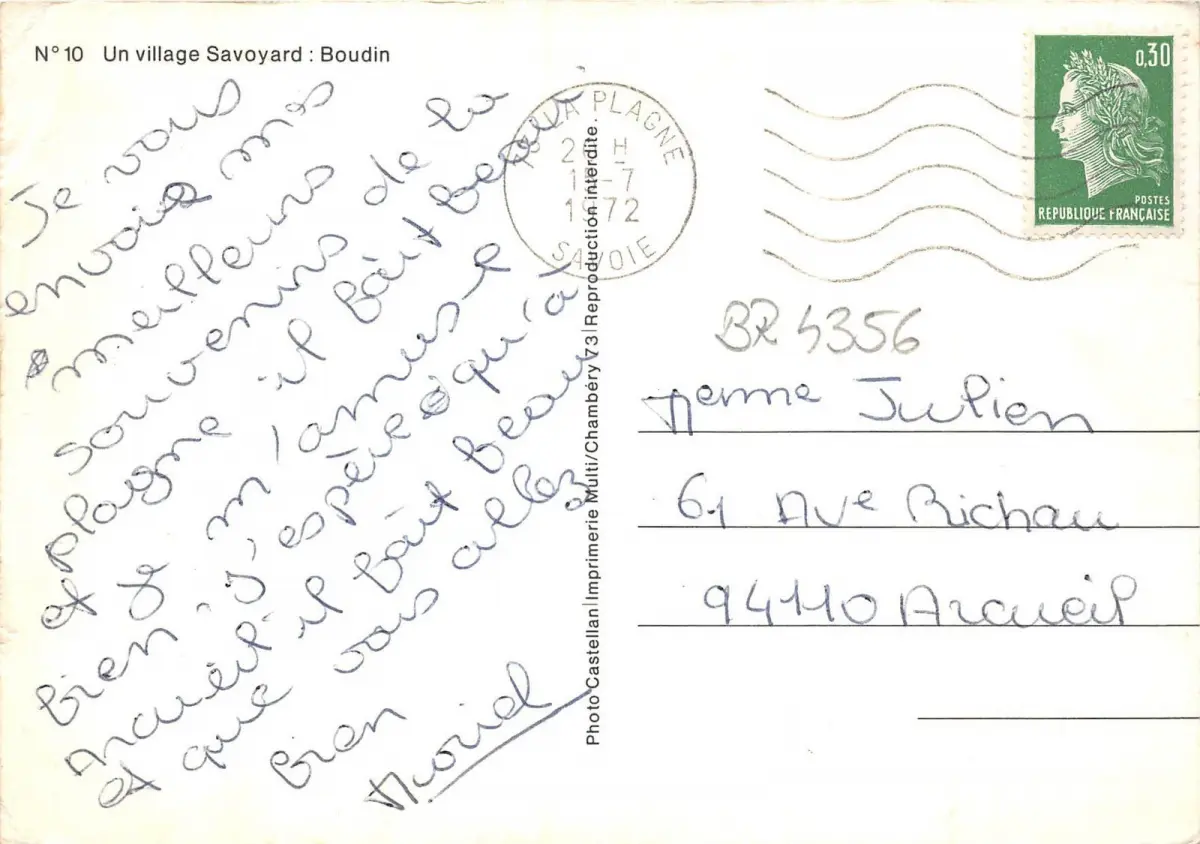 N° 10 Un village Savoyard : Boudin
Je vous
envoie mes
meilleurs
souvenirs de la
plagne il fait beau
et je m'amuse
bien j'espère qu'à
Arcueil il fait beau
et que vous allez
bien
Muriel
Photo Castellan Imprimerie Multi/Chambéry 73 Reproduction interdite.
LA PLAGNE
H
-7
1972
SAVOIE
0,30
POSTES
REPUBLIQUE FRANÇAISE
BR 4356
Memme Julien
61 Ave Richau
94110 Arcueil